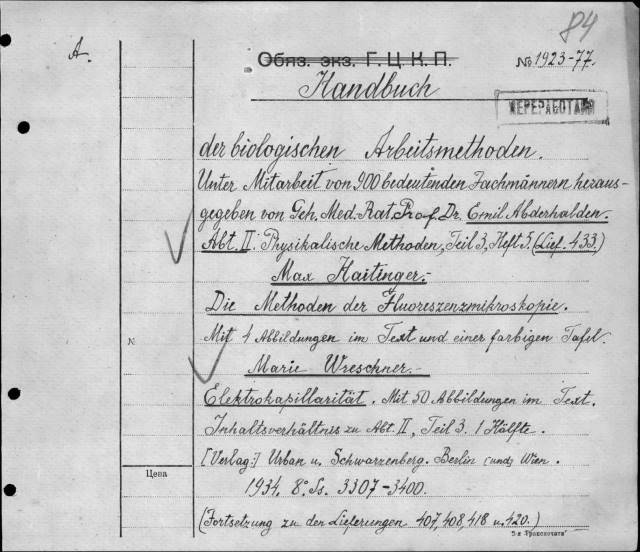 84
A.
Обяз. экз. Г.Ц.К.П. № 1923-77.
Handbuch
ПЕРЕРАБОТАНО
der biologischen Arbeitsmethoden.
Unter Mitarbeit von 900 bedeutenden Fachmännern heraus-
gegeben von Geh. Med. Rat. Prof. Dr. Emil Abderhalden.
Abt. II: Physikalische Methoden, Teil 3, Heft 5. (Lief. 433.)
Max Haitinger.-
Die Methoden der Fluoreszenzmikroskopie.
Mit 4 Abbildungen im Text und einer farbigen Tafel.
№
Marie Wreschner.-
Elektrokapillarität. Mit 50 Abbildungen im Text.
Inhaltsverhältnis zu Abt. II, Teil 3. 1 Hälfte.
[Verlag:] Urban u. Schwarzenberg. Berlin (und) Wien.
Цена
1934. 8° Ss. 3307-3400.
(Fortsetzung zu den Lieferungen 407, 408, 418 u. 420.)
5-я „Транспечати“